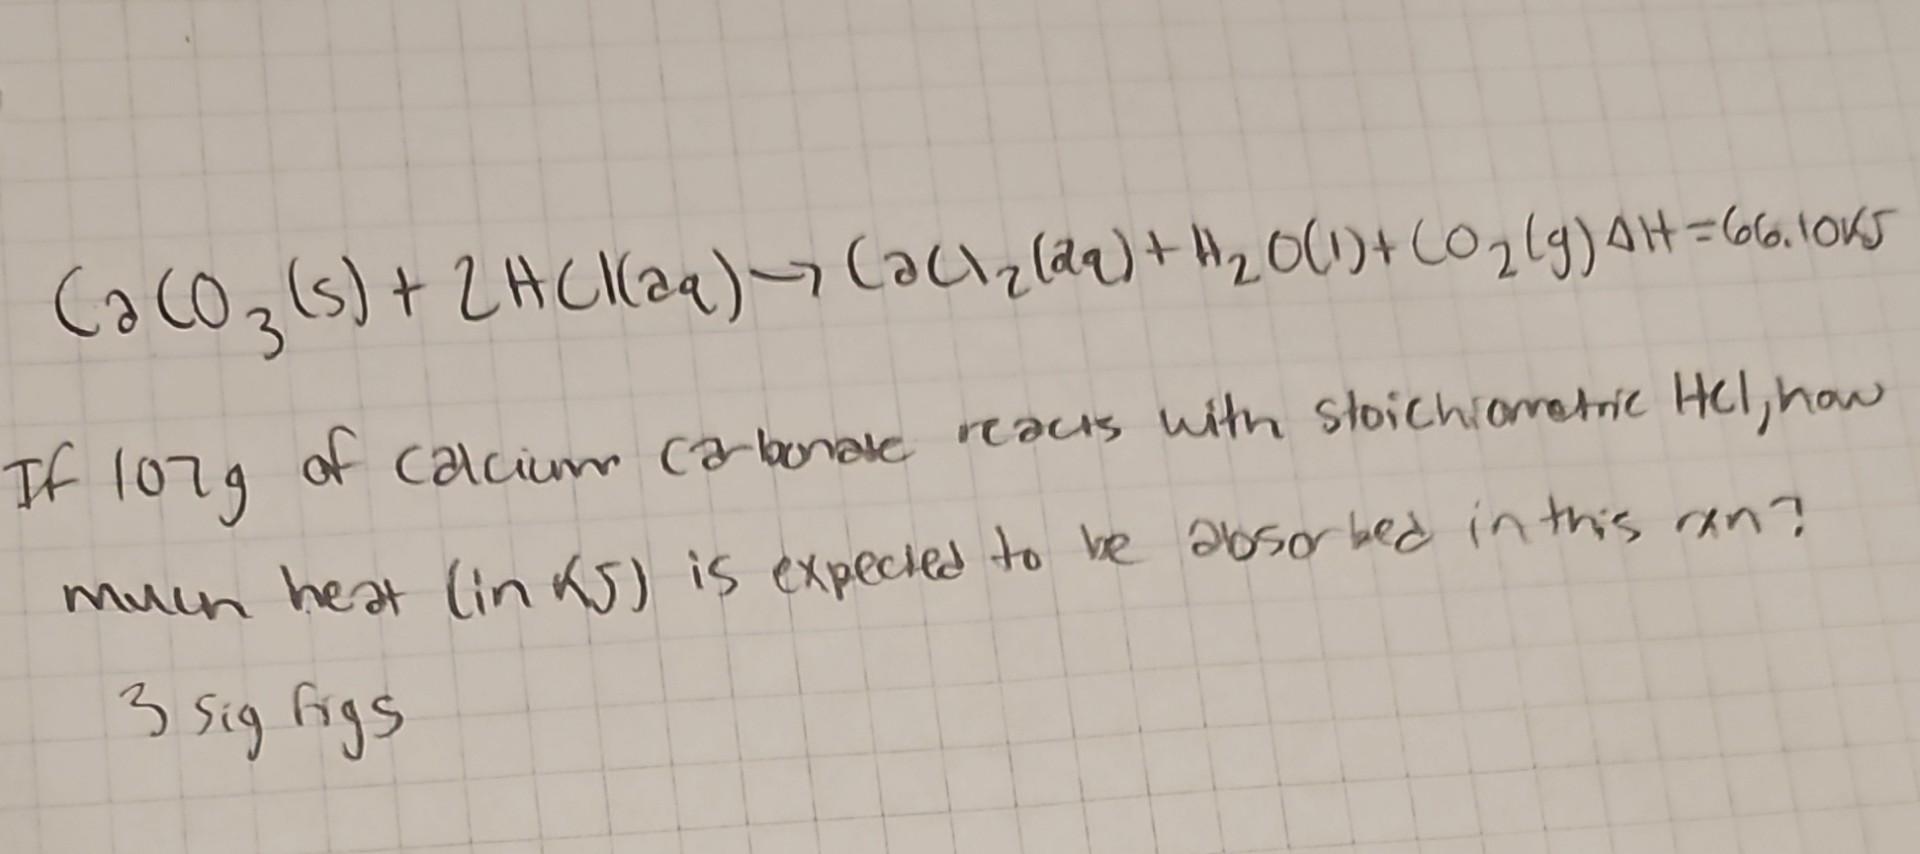 CaCO₃(s) + 2HCl(aq) → CaCl₂(aq) + H₂O(l) + CO₂(g) ΔH = 66.10 KJ
If 107g of calcium carbonate reacts with stoichiometric HCl, how
much heat (in KJ) is expected to be absorbed in this rxn?
3 sig figs